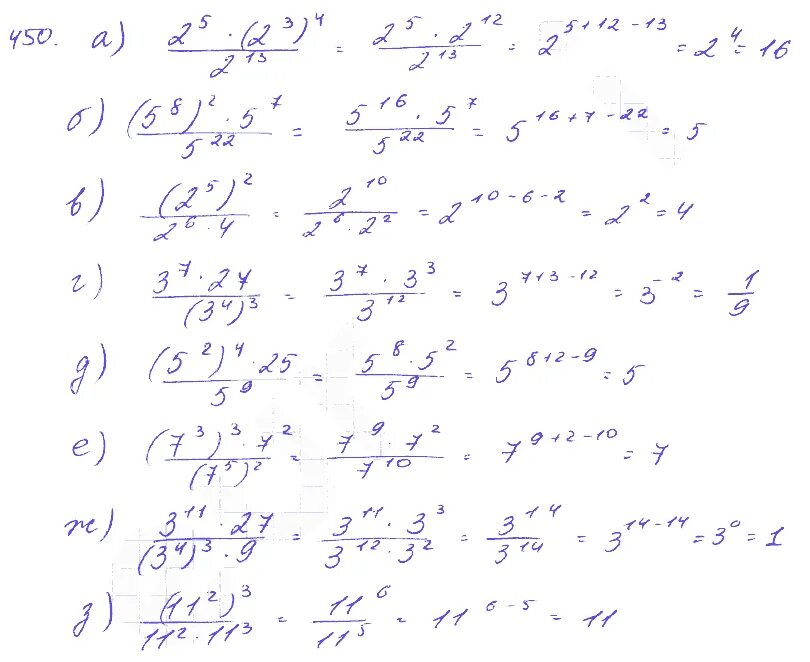 450. а) (2^5 · (2^3)^4)/(2^13) = (2^5 · 2^12)/(2^13) = 2^(5+12-13) = 2^4 = 16
б) ((5^8)^2 · 5^7)/(5^22) = (5^16 · 5^7)/(5^22) = 5^(16+7-22) = 5
в) ((2^5)^2)/(2^6 · 4) = (2^10)/(2^6 · 2^2) = 2^(10-6-2) = 2^2 = 4
г) (3^7 · 27)/((3^4)^3) = (3^7 · 3^3)/(3^12) = 3^(7+3-12) = 3^(-2) = 1/9
д) ((5^2)^4 · 25)/(5^9) = (5^8 · 5^2)/(5^9) = 5^(8+2-9) = 5
е) ((7^3)^3 · 7^2)/((7^5)^2) = (7^9 · 7^2)/(7^10) = 7^(9+2-10) = 7
ж) (3^11 · 27)/((3^4)^3 · 9) = (3^11 · 3^3)/(3^12 · 3^2) = (3^14)/(3^14) = 3^(14-14) = 3^0 = 1
з) ((11^2)^3)/(11^2 · 11^3) = (11^6)/(11^5) = 11^(6-5) = 11